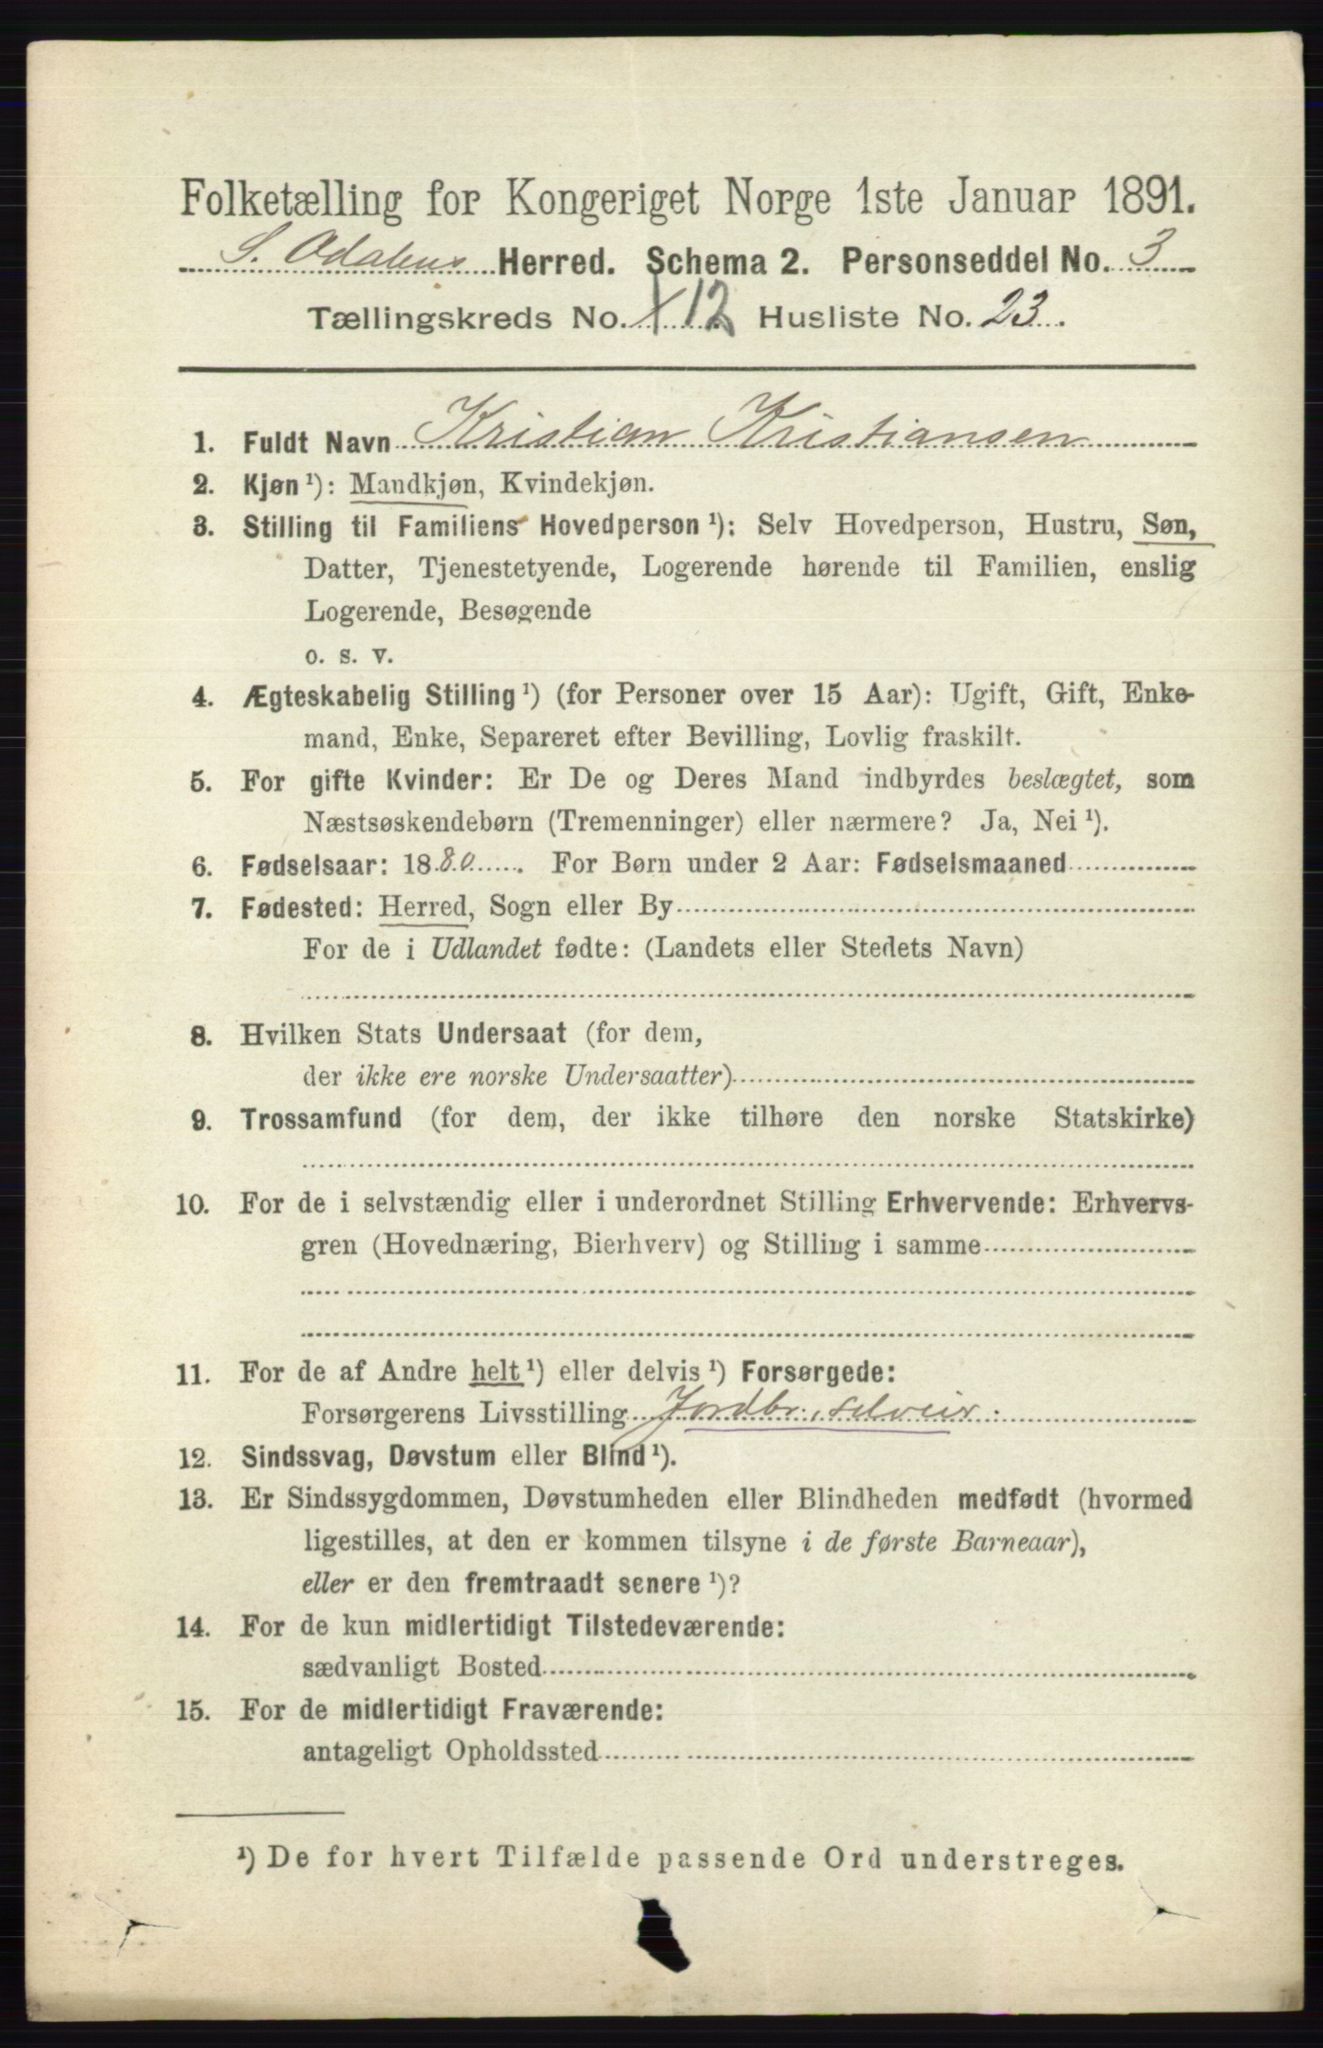 Folketælling for Kongeriget Norge 1ste Januar 1891.
S. Odalens Herred. Schema 2. Personseddel No. 3
Tællingskreds No. 12 Husliste No. 23.
1. Fuldt Navn Kristian Kristiansen
2. Kjøn ¹): Mandkjøn, Kvindekjøn.
3. Stilling til Familiens Hovedperson ¹): Selv Hovedperson, Hustru, Søn,
Datter, Tjenestetyende, Logerende hørende til Familien, enslig
Logerende, Besøgende
o. s. v.
4. Ægteskabelig Stilling ¹) (for Personer over 15 Aar): Ugift, Gift, Enke-
mand, Enke, Separeret efter Bevilling, Lovlig fraskilt.
5. For gifte Kvinder: Er De og Deres Mand indbyrdes beslægtet, som
Næstsøskendebørn (Tremenninger) eller nærmere? Ja, Nei ¹).
6. Fødselsaar: 1880. For Børn under 2 Aar: Fødselsmaaned
7. Fødested: Herred, Sogn eller By
For de i Udlandet fødte: (Landets eller Stedets Navn)
8. Hvilken Stats Undersaat (for dem,
der ikke ere norske Undersaatter)
9. Trossamfund (for dem, der ikke tilhøre den norske Statskirke)
10. For de i selvstændig eller i underordnet Stilling Erhvervende: Erhvervs-
gren (Hovednæring, Bierhverv) og Stilling i samme
11. For de af Andre helt ¹) eller delvis ¹) Forsørgede:
Forsørgerens Livsstilling Jordbr., selveier.
12. Sindssvag, Døvstum eller Blind ¹).
13. Er Sindssygdommen, Døvstumheden eller Blindheden medfødt (hvormed
ligestilles, at den er kommen tilsyne i de første Barneaar),
eller er den fremtraadt senere ¹)?
14. For de kun midlertidigt Tilstedeværende:
sædvanligt Bosted
15. For de midlertidigt Fraværende:
antageligt Opholdssted
¹) De for hvert Tilfælde passende Ord understreges.